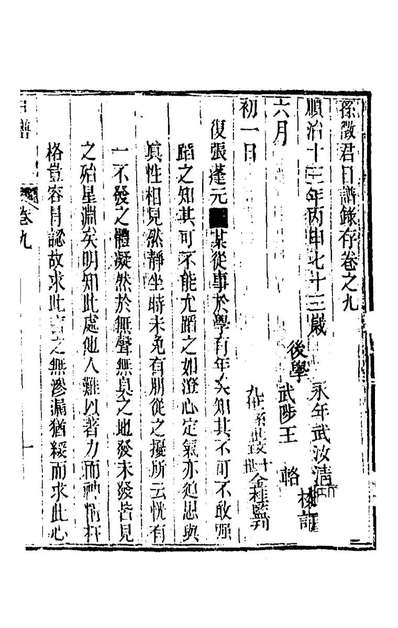 孫徵君日譜錄存卷之九
順治十三年丙申七十三歲
永年武汝清
後學武陟王輅校訂
六月
初一日
復張蓬元某從事於學有年矣知其不可不敢强
蹈之知其可不能允蹈之如澄心定氣亦廹思與
眞性相見然靜坐時未免有朋從之擾所云恍有
一不發之體凝然於無聲無臭之地發未發皆見
之殆星淵矣明知此處他人難以著力而神情扞
格豈容冒認故求此言之無滲漏猶緩而求此心
日譜
卷九
一